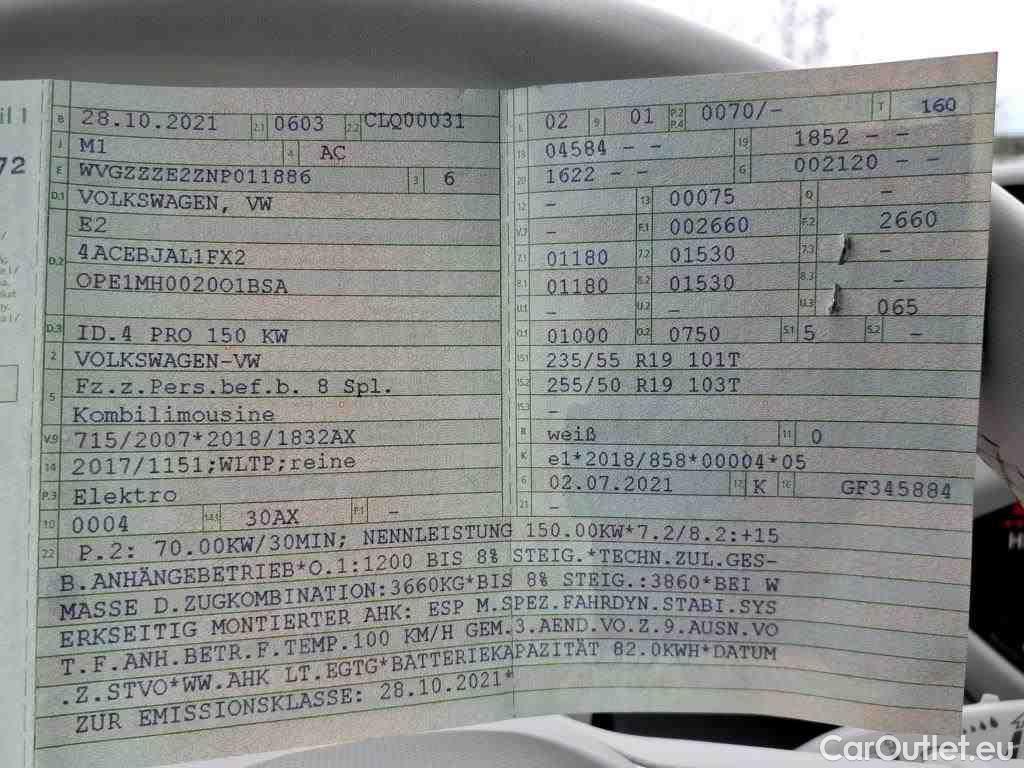 il 1
72
B 28.10.2021 2.1 0603 2.2 CLQ00031
J M1 4 AC
E WVGZZZE2ZNP011886 3 6
D.1 VOLKSWAGEN, VW
E2
D.2 4ACEBJAL1FX2
OPE1MH002001BSA
D.3 ID.4 PRO 150 KW
2 VOLKSWAGEN-VW
5 Fz.z.Pers.bef.b. 8 Spl.
Kombilimousine
V.9 715/2007*2018/1832AX
14 2017/1151;WLTP;reine
P.3 Elektro
10 0004 14.1 30AX P.1 -
L 02 9 01 P.2 P.4 0070/- T 160
18 04584 - - 19 1852 - -
20 1622 - - G 002120 - -
12 - 13 00075 Q -
V.7 - F.1 002660 F.2 2660
7.1 01180 7.2 01530 7.3 -
8.1 01180 8.2 01530 8.3 -
U.1 - U.2 - U.3 065
O.1 01000 O.2 0750 S.1 5 S.2 -
15.1 235/55 R19 101T
15.2 255/50 R19 103T
15.3 -
R weiß 11 0
K e1*2018/858*00004*05
6 02.07.2021 17 K 16 GF345884
21 -
22 P.2: 70.00KW/30MIN; NENNLEISTUNG 150.00KW*7.2/8.2:+15
B.ANHÄNGEBETRIEB*O.1:1200 BIS 8% STEIG.*TECHN.ZUL.GES-
MASSE D.ZUGKOMBINATION:3660KG*BIS 8% STEIG.:3860*BEI W
ERKSEITIG MONTIERTER AHK: ESP M.SPEZ.FAHRDYN.STABI.SYS
T.F.ANH.BETR.F.TEMP.100 KM/H GEM.3.AEND.VO.Z.9.AUSN.VO
.Z.STVO*WW.AHK LT.EGTG*BATTERIEKAPAZITÄT 82.0KWH*DATUM
ZUR EMISSIONSKLASSE: 28.10.2021*
CarOutlet.eu